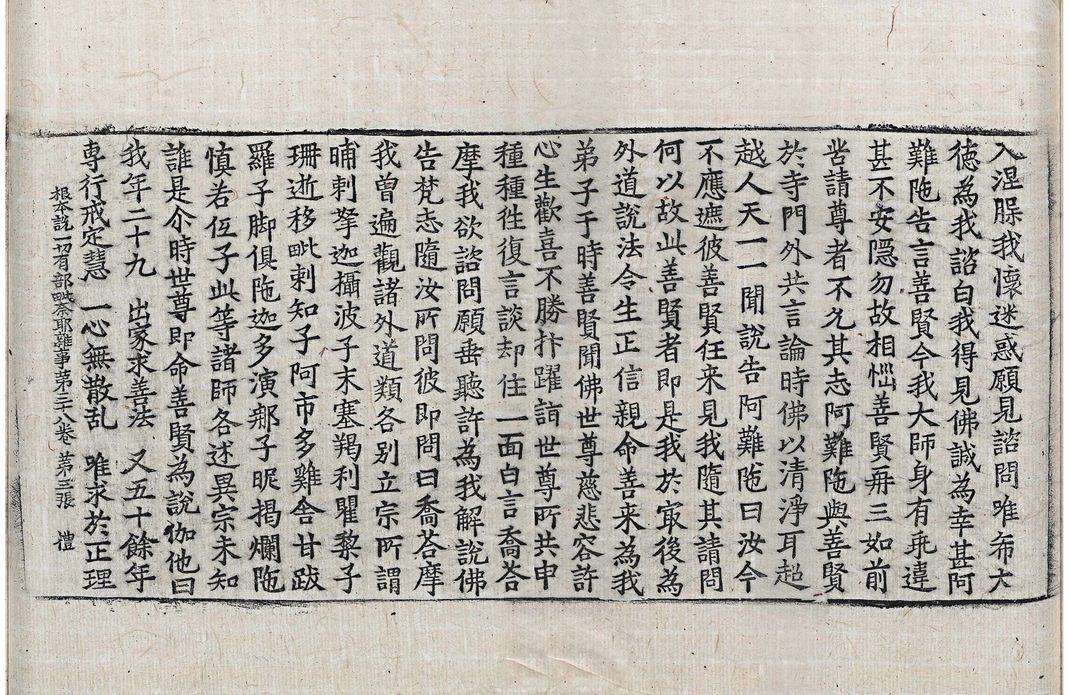 入涅槃我懷迷惑願見諮問唯希大
德為我諮白我得見佛誠為幸甚阿
難陁告言善賢今我大師身有乖違
甚不安隱勿故相惱善賢再三如前
苦請尊者不允其志阿難陁與善賢
於寺門外共言論時佛以清淨耳超
越人天一一聞說告阿難陁曰汝今
不應遮彼善賢任来見我隨其請問
何以故此善賢者即是我於㝡後為
外道說法令生正信親命善来為我
弟子于時善賢聞佛世尊慈悲容許
心生歡喜不勝抃躍詣世尊所共申
種種徃復言談却住一面白言喬荅
摩我欲諮問願垂聽許為我解說佛
告梵志隨汝所問彼即問曰喬荅摩
我曾遍觀諸外道類各别立宗所謂
晡剌拏迦攝波子末塞羯利瞿黎子
珊逝移毗剌知子阿市多雞舍甘跋
羅子脚俱陁迦多演那子昵揭爛陁
慎若低子此等諸師各述異宗未知
誰是尒時世尊即命善賢為說伽他曰
我年二十九 出家求善法 又五十餘年
專行戒定慧 一心無散乱 唯求於正理
根本說一切有部毗奈耶雜事第三十八卷 第三張 禮